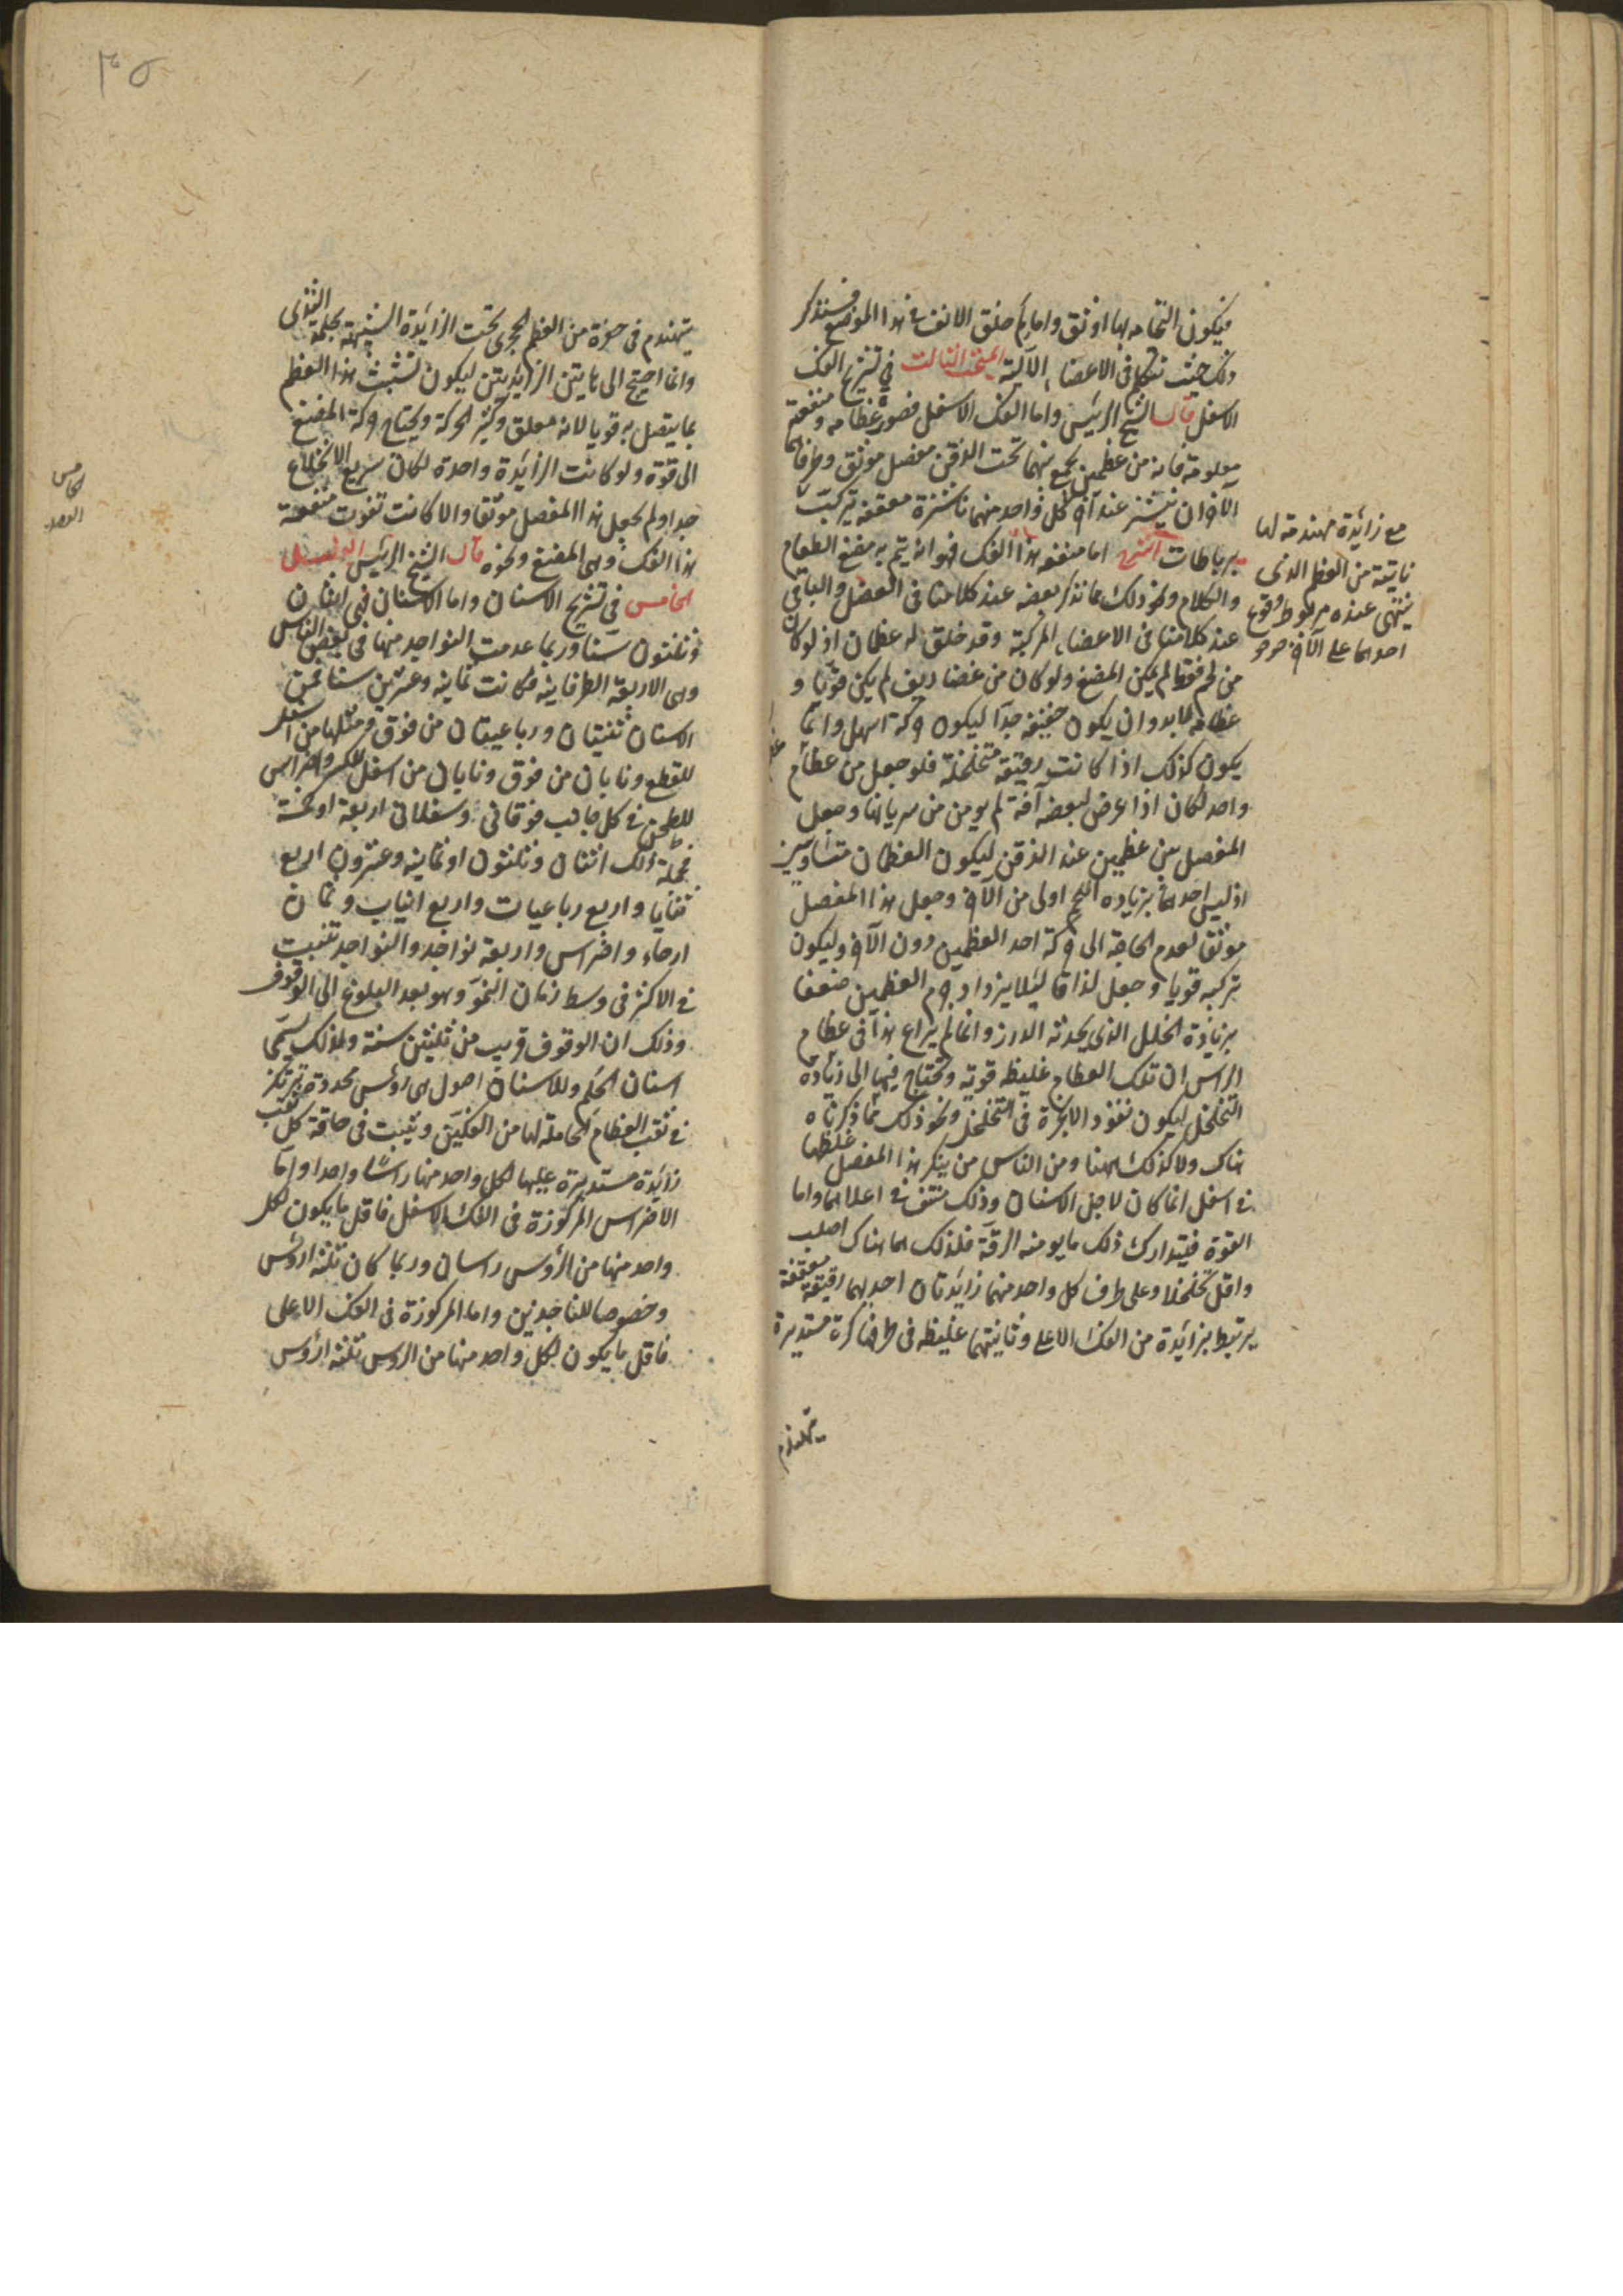 فيكون التحامه بها اوثق واما لم خلق الانف في هذا الموضع فسنذكر
ذلك حيث نتكلم في الاعضاء الآلية المبحث الثالث في تشريح الفك
الاسفل قال الشيخ الرئيس واما الفك الاسفل فصورة عظامه ومنفعته
معلومة فانه من عظمين يجمع بينهما تحت الذقن مفصل موثق وطرفاهما
الآخران ينتشز عند آخر كل واحد منهما ناشزة معقفة تتركب
مع زائدة مهندمة لها
نابتة من العظم الذي
ينتهي عنده مربوط وقوع
احدهما على الآخر
برباطات الشرح اما منفعة هذا الفك فهو انه يتم به مضغ الطعام
والكلام ونحو ذلك مما نذكر بعضه عند كلامنا في العضل والباقي
عند كلامنا في الاعضاء المركبة وقد خلق له عظمان اذ لو كان
من لحم فقط لم يمكن المضغ ولو كان من غضاريف لم يكن قويا و
عظامه لابد وان يكون خفيفة جدا ليكون حركته اسهل وانما
يكون كذلك اذا كانت رقيقة متخلخلة فلو جعل من عظم
واحد لكان اذا عرض لبعضه آفة لم يومن من سريانها وجعل
المفصل بين عظمين عند الذقن ليكون العظمان متساويين
اذ ليس احدهما بزيادة الكبر اولى من الآخر وجعل هذا المفصل
موثق لعدم الحاجة الى حركة احد العظمين دون الآخر وليكون
تركيبه قويا وجعل لذاقا ليلا يزداد جرم العظمين ضعفا
بزيادة الخلل الذي يحدثه الدرز وانما لم يراع هذا في عظام
الراس ان تلك العظام غليظة قوية وتحتاج فيها الى زيادة
التخلخل ليكون نفوذ الابخرة في التخلخل ونحو ذلك مما ذكرناه
هناك ولا كذلك ههنا ومن الناس من ينكر هذا المفصل غلظها
في اسفل انما كان لاجل الاسنان وذلك منتف في اعلاهما واما
القوة فيتدارك ذلك ما يوهنه الرقة فلذلك هما هناك اصلب
واقل تخلخلا وعلى طرف كل واحد منهما زائدتان احديهما رقيقة معقفة
يرتبط بزائدة من الفك الاعلى وثانيتهما غليظة في طرفها كرة مستديرة
يتهندم
٣٥
يتهندم في حفرة من العظم الحجري تحت الزائدة الشبيهة بحلمة الثدي
وانما احتيج الى هاتين الزائدتين ليكون تشبث هذا العظم
بما يتصل به قويا لانه معلق وكثير الحركة ويحتاج حركة المضغ
الى قوة ولو كانت الزائدة واحدة لكان سريع الانخلاع
جدا ولم يجعل هذا المفصل موثقا والا كانت تفوت منفعة
هذا الفك وهي المضغ ونحوه قال الشيخ الرئيس الفصل
الخامس في تشريح الاسنان واما الاسنان فهي اثنان
وثلثون سنا وربما عدمت النواجد منها في بعض الناس
وهي الاربعة الطرفانية فكانت ثمانية وعشرين سنا فمن
الاسنان ثنيتان ورباعيتان من فوق ومثلها من اسفل
للقطع ونابان من فوق ونابان من اسفل للكسر واضراس
للطحن في كل جانب فوقاني وسفلاني اربعة او خمسة
فجملة ذلك اثنان وثلثون او ثمانية وعشرون اربع
ثنايا واربع رباعيات واربع انياب وثمان
ارحاء واضراس واربعة نواجد والنواجد تنبت
في الاكثر في وسط زمان النمو وهو بعد البلوغ الى الوقوف
وذلك ان الوقوف قريب من ثلثين سنة ولذلك يسمى
اسنان الحلم وللاسنان اصول هي روس محددة ترتكز
في ثقب العظام الحاملة لها من الفكين وينبت في حافة كل ثقب
زائدة مستديرة عليها لكل واحد منها راسا واحدا واما
الاضراس المركوزة في الفك الاسفل فاقل ما يكون لكل
واحد منها من الروس راسان وربما كان ثلثة اروس
وخصوصا للناجدين واما المركوزة في الفك الاعلى
فاقل ما يكون لكل واحد منها من الروس ثلثة اروس
الخامس
الفصل